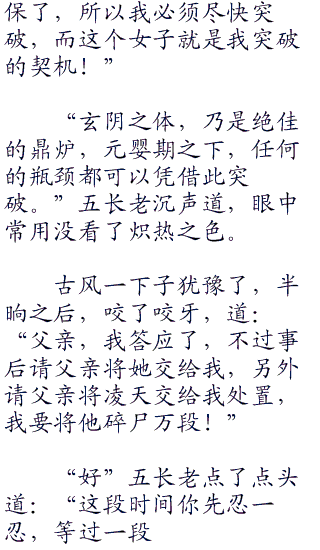 保了，所以我必须尽快突
破，而这个女子就是我突破
的契机！”
“玄阴之体，乃是绝佳
的鼎炉，元婴期之下，任何
的瓶颈都可以凭借此突
破。”五长老沉声道，眼中
常用没看了炽热之色。
古风一下子犹豫了，半
晌之后，咬了咬牙，道：
“父亲，我答应了，不过事
后请父亲将她交给我，另外
请父亲将凌天交给我处置，
我要将他碎尸万段！”
“好”五长老点了点头
道：“这段时间你先忍一
忍，等过一段